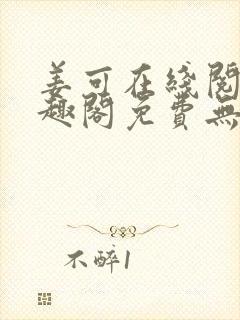 姜可在线阅
趣阁免費無
不醉1